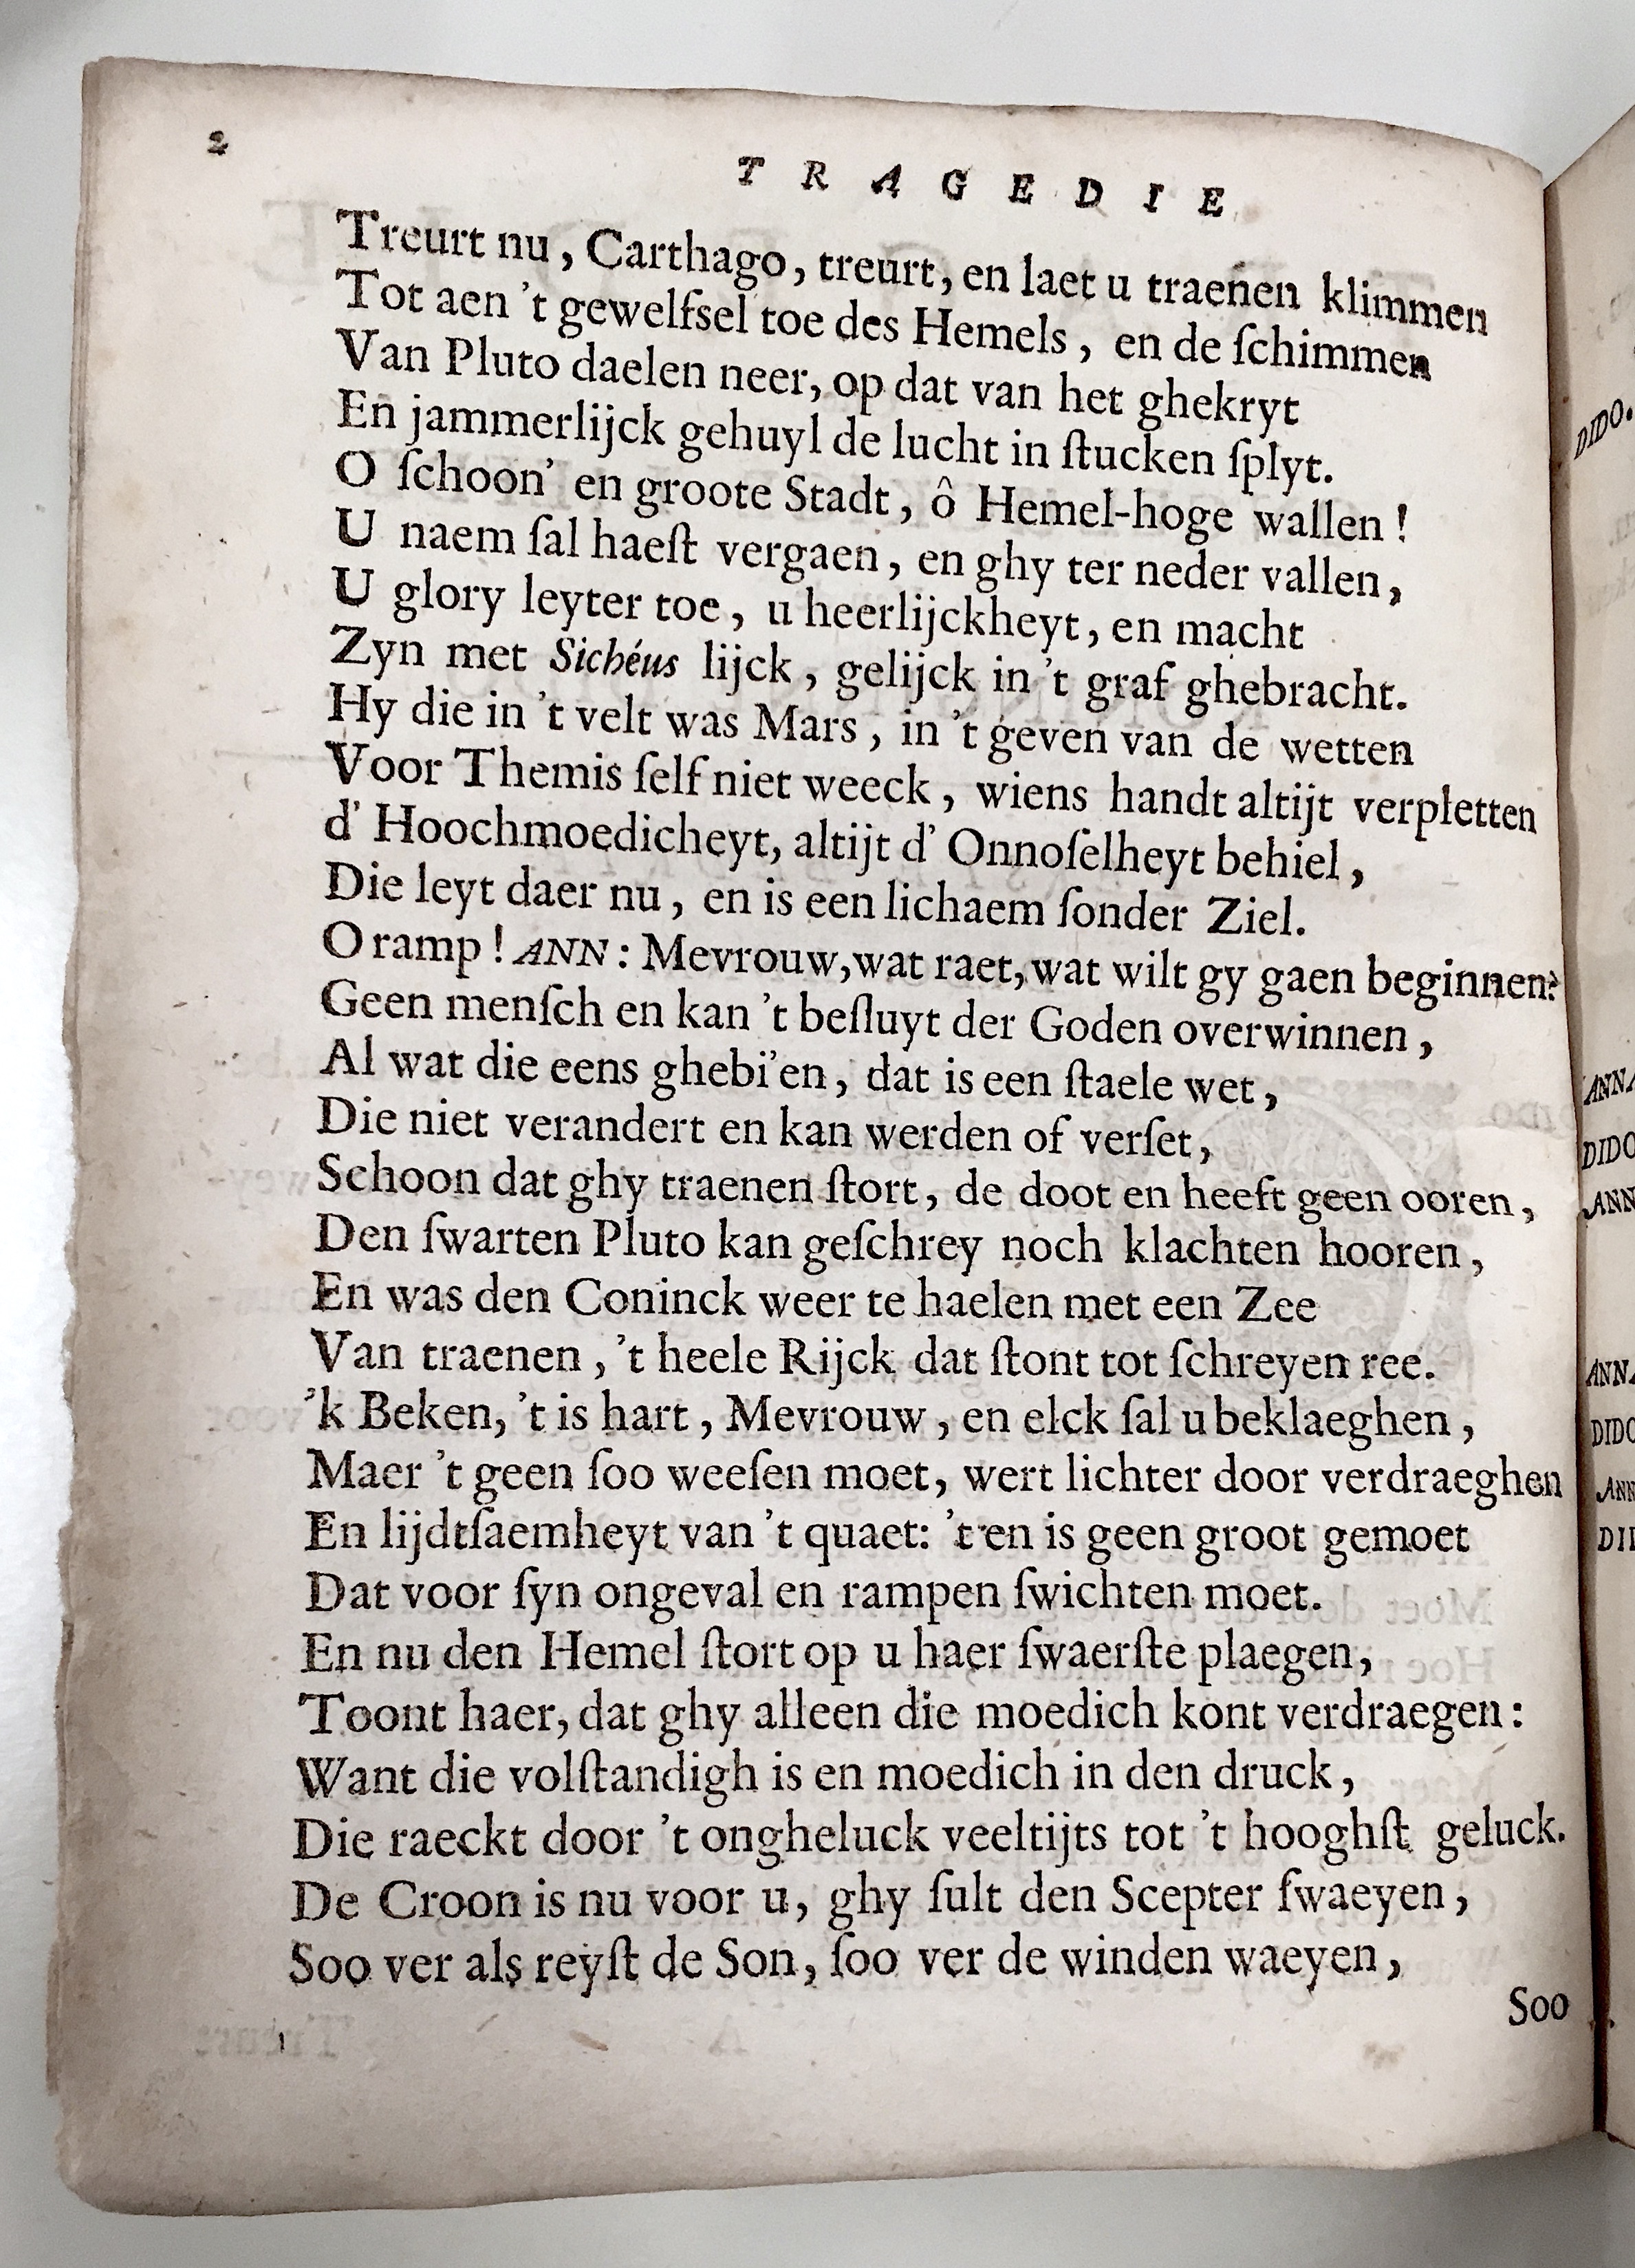 2
TRAGEDIE
Treurt nu, Carthago, treurt, en laet u traenen klimmen
Tot aen 't gewelfsel toe des Hemels, en de ſchimmen
Van Pluto daelen neer, op dat van het ghekryt
En jammerlijck gehuyl de lucht in ſtucken ſplyt.
O ſchoon' en groote Stadt, ô Hemel-hoge wallen!
U naem ſal haeſt vergaen, en ghy ter neder vallen,
U glory leyter toe, u heerlijckheyt, en macht
Zyn met Sichéus lijck, gelijck in 't graf ghebracht.
Hy die in 't velt was Mars, in 't geven van de wetten
Voor Themis ſelf niet weeck, wiens handt altijt verpletten
d' Hoochmoedicheyt, altijt d' Onnoſelheyt behiel,
Die leyt daer nu, en is een lichaem ſonder Ziel.
O ramp! ANN: Mevrouw, wat raet, wat wilt gy gaen beginnen?
Geen menſch en kan 't beſluyt der Goden overwinnen,
Al wat die eens ghebi'en, dat is een ſtaele wet,
Die niet verandert en kan werden of verſet,
Schoon dat ghy traenen ſtort, de doot en heeft geen ooren,
Den ſwarten Pluto kan geſchrey noch klachten hooren,
En was den Coninck weer te haelen met een Zee
Van traenen, 't heele Rijck dat ſtont tot ſchreyen ree.
'k Beken, 't is hart, Mevrouw, en elck ſal u beklaeghen,
Maer 't geen ſoo weeſen moet, wert lichter door verdraeghen
En lijdtſaemheyt van 't quaet: 't en is geen groot gemoet
Dat voor ſyn ongeval en rampen ſwichten moet.
En nu den Hemel ſtort op u haer ſwaerſte plaegen,
Toont haer, dat ghy alleen die moedich kont verdraegen:
Want die volſtandigh is en moedich in den druck,
Die raeckt door 't ongheluck veeltijts tot 't hooghſt geluck.
De Croon is nu voor u, ghy ſult den Scepter ſwaeyen,
Soo ver als reyſt de Son, ſoo ver de winden waeyen,
Soo
DIDO.